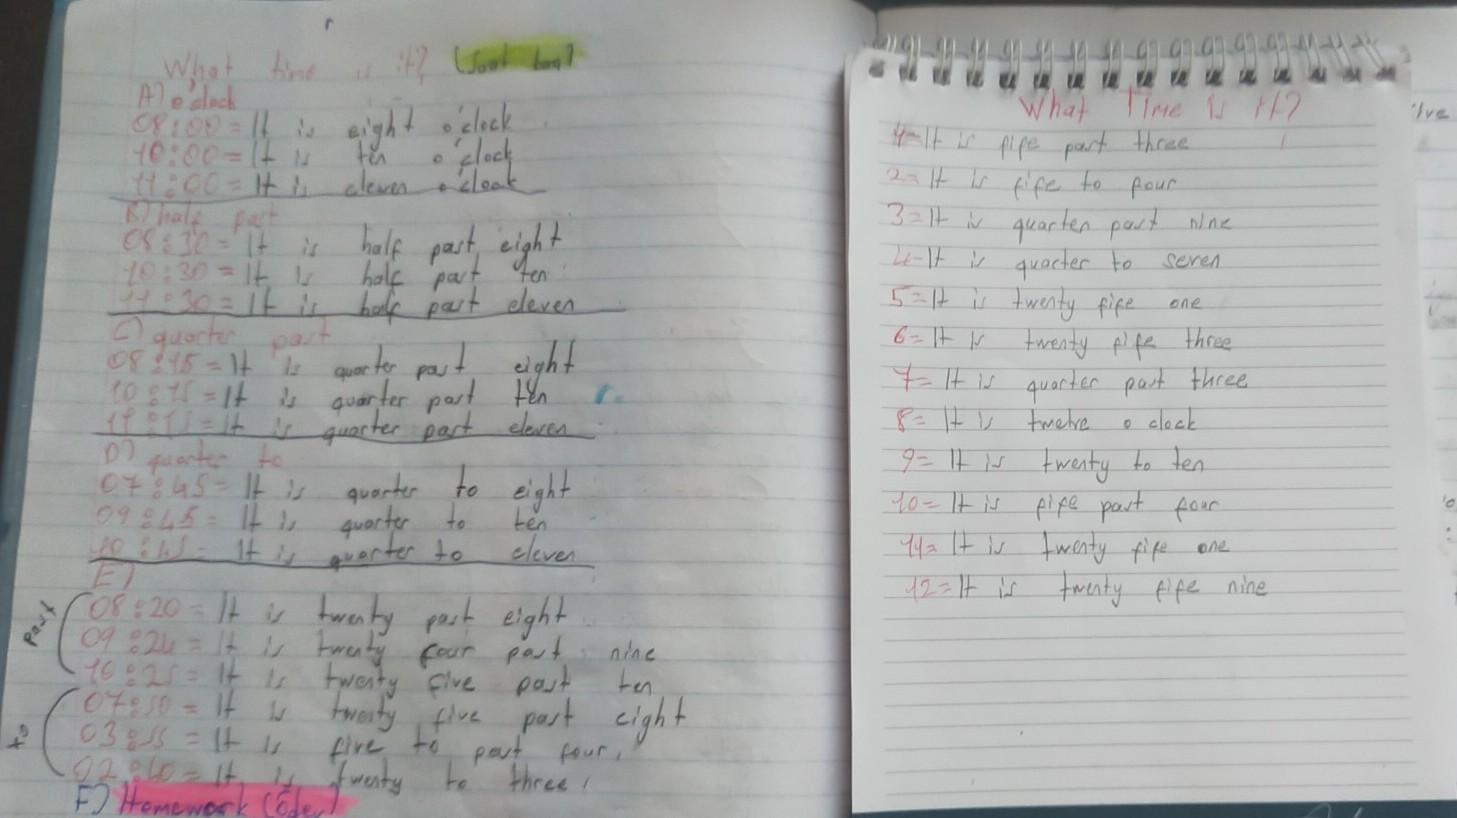 What time is it? (Saat kaç)
A) o'clock
08:00 = It is eight o'clock
10:00 = It is ten o'clock
11:00 = It is eleven o'cloak
B) half past
08:30 = It is half past eight
10:30 = It is half past ten
11:30 = It is half past eleven
C) quarter past
08:15 = It is quarter past eight
10:15 = It is quarter past ten
11:15 = It is quarter past eleven
D) quarter to
07:45 = It is quarter to eight
09:45 = It is quarter to ten
10:45 = It is quarter to eleven
E)
past
08:20 = It is twenty past eight
09:24 = It is twenty four past nine
10:25 = It is twenty five past ten
to
07:50 = It is twenty five past eight
03:55 = It is five to past four
02:40 = It is twenty to three
F) Homework (Ödev)
What Time is it?
1= It is fife past three
2= It is fife to four
3= It is quarter past nine
4= It is quarter to seven
5= It is twenty fife one
6= It is twenty fife three
7= It is quarter past three
8= It is twelve o clock
9= It is twenty to ten
10= It is fife past four
11= It is twenty fife one
12= It is twenty fife nine